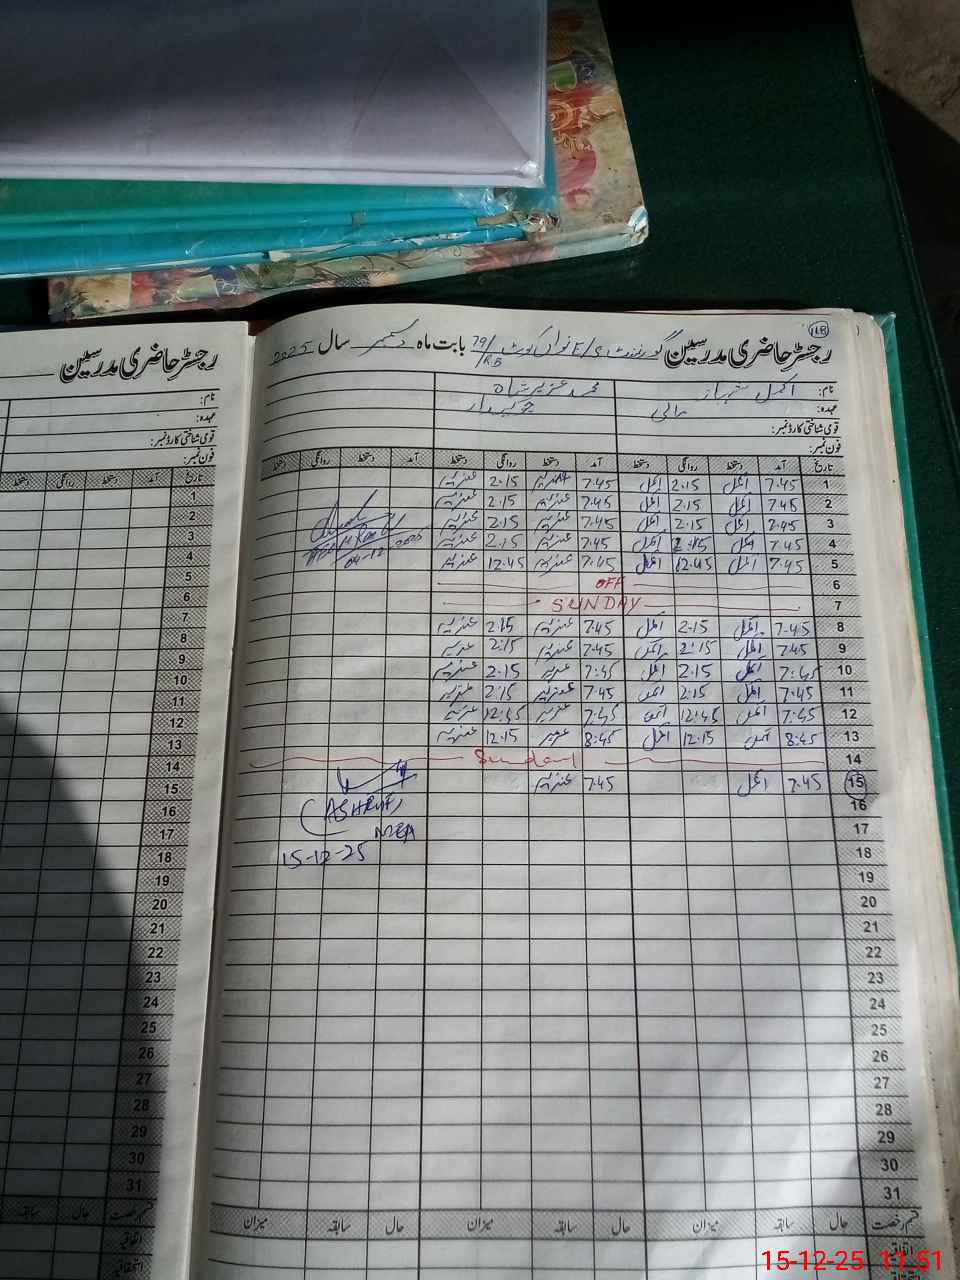 118
رجسٹر حاضری مدرسین گورنمنٹ E/S نواں کوٹ 79/RB بابت ماہ دسمبر سال 2025
نام: اکمل شہباز محمد عزیر شاہ
عہدہ: مالی چوکیدار
قومی شناختی کارڈ نمبر:
فون نمبر:
تاریخ آمد دستخط روانگی دستخط آمد دستخط روانگی دستخط آمد دستخط روانگی دستخط
1 7.45 اکمل 2.15 اکمل 7.45 عزیر 2.15 عزیر
2 7.45 اکمل 2.15 اکمل 7.45 عزیر 2.15 عزیر
3 7.45 اکمل 2.15 اکمل 7.45 عزیر 2.15 عزیر
4 7.45 اکمل 2.15 اکمل 7.45 عزیر 2.15 عزیر
04-12-2025
5 7.45 اکمل 12.45 اکمل 7.45 عزیر 12.45 عزیر
6 OFF
7 SUNDAY
8 7.45 اکمل 2.15 اکمل 7.45 عزیر 2.15 عزیر
9 7.45 اکمل 2:15 اکمل 7.45 عزیر 2:15 عزیر
10 7:45 اکمل 2.15 اکمل 7:45 عزیر 2.15 عزیر
11 7:45 اکمل 2:15 اکمل 7.45 عزیر 2:15 عزیر
12 7:45 اکمل 12:45 اکمل 7:45 عزیر 12:45 عزیر
13 8:45 اکمل 12.15 اکمل 8:45 عزیر 12.15 عزیر
14 Sunday
15 7.45 اکمل 7.45 عزیر
(ASHRAF)
MEA
15-12-25
16
17
18
19
20
21
22
23
24
25
26
27
28
29
30
31
قسم رخصت حال سابقہ میزان حال سابقہ میزان حال سابقہ میزان
اتفاقیہ
رجسٹر حاضری مدرسین
نام:
عہدہ:
قومی شناختی کارڈ نمبر:
فون نمبر:
تاریخ آمد دستخط روانگی دستخط
1
2
3
4
5
6
7
8
9
10
11
12
13
14
15
16
17
18
19
20
21
22
23
24
25
26
27
28
29
30
31
قسم رخصت حال سابقہ
اتفاقیہ
استحقاقیہ
15-12-25 11:51